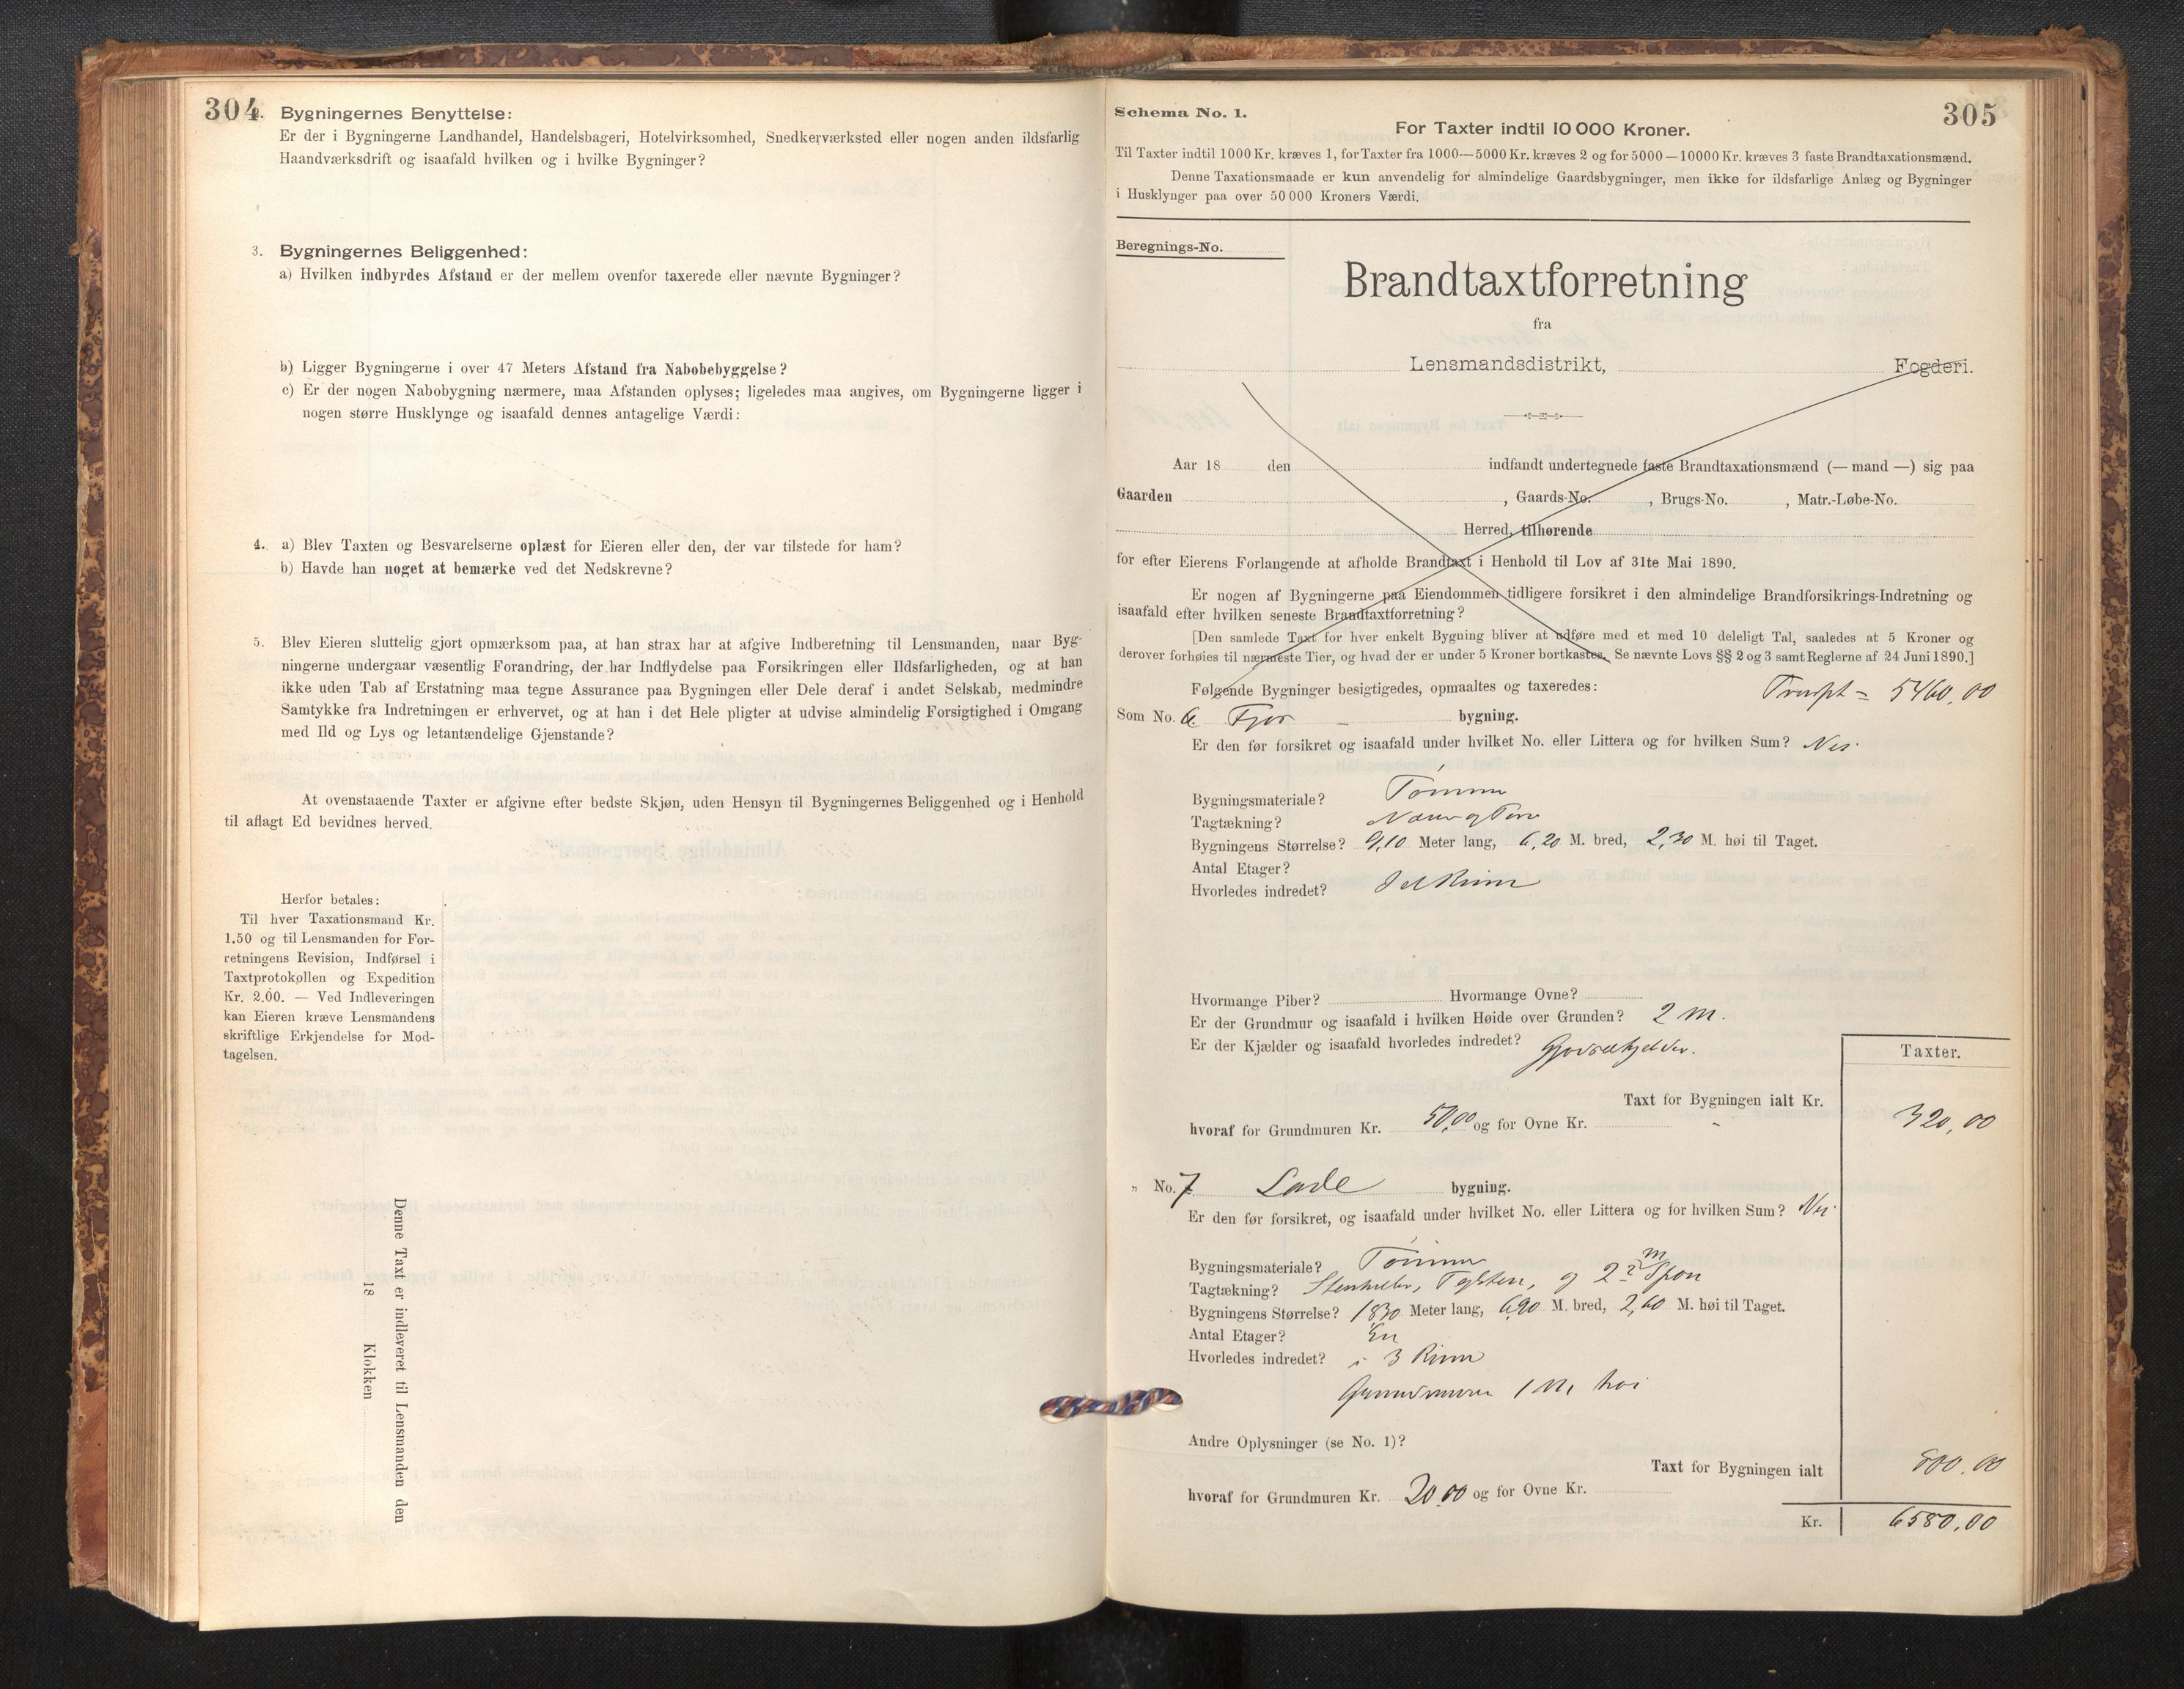 304
2. Bygningernes Benyttelse:
Er der i Bygningerne Landhandel, Handelsbageri, Hotelvirksomhed, Snedkerværksted eller nogen anden ildsfarlig
Haandværksdrift og isaafald hvilken og i hvilke Bygninger?
3. Bygningernes Beliggenhed:
a) Hvilken indbyrdes Afstand er der mellem ovenfor taxerede eller nævnte Bygninger?
b) Ligger Bygningerne i over 47 Meters Afstand fra Nabobebyggelse?
c) Er der nogen Nabobygning nærmere, maa Afstanden oplyses; ligeledes maa angives, om Bygningerne ligger i
nogen større Husklynge og isaafald dennes antagelige Værdi:
4. a) Blev Taxten og Besvarelserne oplæst for Eieren eller den, der var tilstede for ham?
b) Havde han noget at bemærke ved det Nedskrevne?
5. Blev Eieren sluttelig gjort opmærksom paa, at han strax har at afgive Indberetning til Lensmanden, naar Byg-
ningerne undergaar væsentlig Forandring, der har Indflydelse paa Forsikringen eller Ildsfarligheden, og at han
ikke uden Tab af Erstatning maa tegne Assurance paa Bygningen eller Dele deraf i andet Selskab, medmindre
Samtykke fra Indretningen er erhvervet, og at han i det Hele pligter at udvise almindelig Forsigtighed i Omgang
med Ild og Lys og letantændelige Gjenstande?
At ovenstaaende Taxter er afgivne efter bedste Skjøn, uden Hensyn til Bygningernes Beliggenhed og i Henhold
til aflagt Ed bevidnes herved.
Herfor betales:
Til hver Taxationsmand Kr.
1.50 og til Lensmanden for For-
retningens Revision, Indførsel i
Taxtprotokollen og Expedition
Kr. 2.00. — Ved Indleveringen
kan Eieren kræve Lensmandens
skriftlige Erkjendelse for Mod-
tagelsen.
Denne Taxt er indleveret til Lensmanden den
18 Klokken
Schema No. 1.
305
For Taxter indtil 10 000 Kroner.
Til Taxter indtil 1000 Kr. kræves 1, for Taxter fra 1000—5000 Kr. kræves 2 og for 5000—10000 Kr. kræves 3 faste Brandtaxationsmænd.
Denne Taxationsmaade er kun anvendelig for almindelige Gaardsbygninger, men ikke for ildsfarlige Anlæg og Bygninger
i Husklynger paa over 50 000 Kroners Værdi.
Beregnings-No.
Brandtaxtforretning
fra
Lensmandsdistrikt, Fogderi.
Aar 18 den indfandt undertegnede faste Brandtaxationsmænd (— mand —) sig paa
Gaarden , Gaards-No. , Brugs-No. , Matr.-Løbe-No.
Herred, tilhørende
for efter Eierens Forlangende at afholde Brandtaxt i Henhold til Lov af 31te Mai 1890.
Er nogen af Bygningerne paa Eiendommen tidligere forsikret i den almindelige Brandforsikrings-Indretning og
isaafald efter hvilken seneste Brandtaxtforretning?
[Den samlede Taxt for hver enkelt Bygning bliver at udføre med et med 10 deleligt Tal, saaledes at 5 Kroner og
derover forhøies til nærmeste Tier, og hvad der er under 5 Kroner bortkastes. Se nævnte Lovs §§ 2 og 3 samt Reglerne af 24 Juni 1890.]
Følgende Bygninger besigtigedes, opmaaltes og taxeredes: Trnspt = 5460,00
Som No. 6. Fjos — bygning.
Er den før forsikret og isaafald under hvilket No. eller Littera og for hvilken Sum? Nei
Bygningsmateriale? Tømmer
Tagtækning? Næver og Torv
Bygningens Størrelse? 9,10 Meter lang, 6,20 M. bred, 2,30 M. høi til Taget.
Antal Etager?
Hvorledes indredet? I et Rum
Hvormange Piber? Hvormange Ovne?
Er der Grundmur og isaafald i hvilken Høide over Grunden? 2 m.
Er der Kjælder og isaafald hvorledes indredet? Gjødselkjelder.
Taxter.
Taxt for Bygningen ialt Kr. 320,00
hvoraf for Grundmuren Kr. 50,00 og for Ovne Kr. -
„ No. 7. Lade bygning.
Er den før forsikret, og isaafald under hvilket No. eller Littera og for hvilken Sum? Nei
Bygningsmateriale? Tømmer
Tagtækning? Stenheller, Tegelsten, og 2 m² Spon
Bygningens Størrelse? 18,30 Meter lang, 6,90 M. bred, 2,60 M. høi til Taget.
Antal Etager? En
Hvorledes indredet? i 3 Rum
Grundmuren 1 M. høi
Andre Oplysninger (se No. 1)?
Taxt for Bygningen ialt 800,00
hvoraf for Grundmuren Kr. 20,00 og for Ovne Kr.
Kr. 6580,00